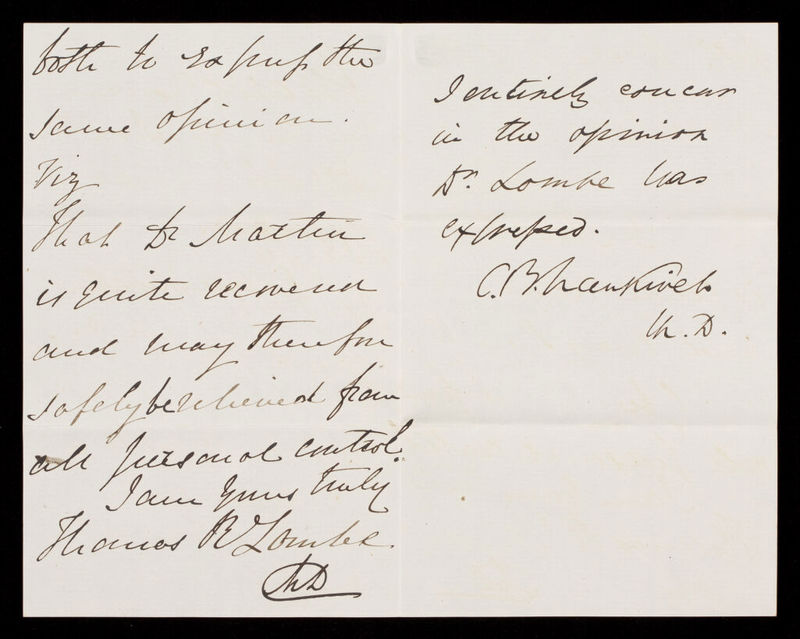 both to express the
same opinion.
Viz
That Dr Martin
is quite recovered
and may therefore
safely be relieved from
all personal control.
I am yours truly
Thomas R Lombe.
MD
I entirely concur
in the opinion
Dr. Lombe has
expressed.
C. B.
M. D.